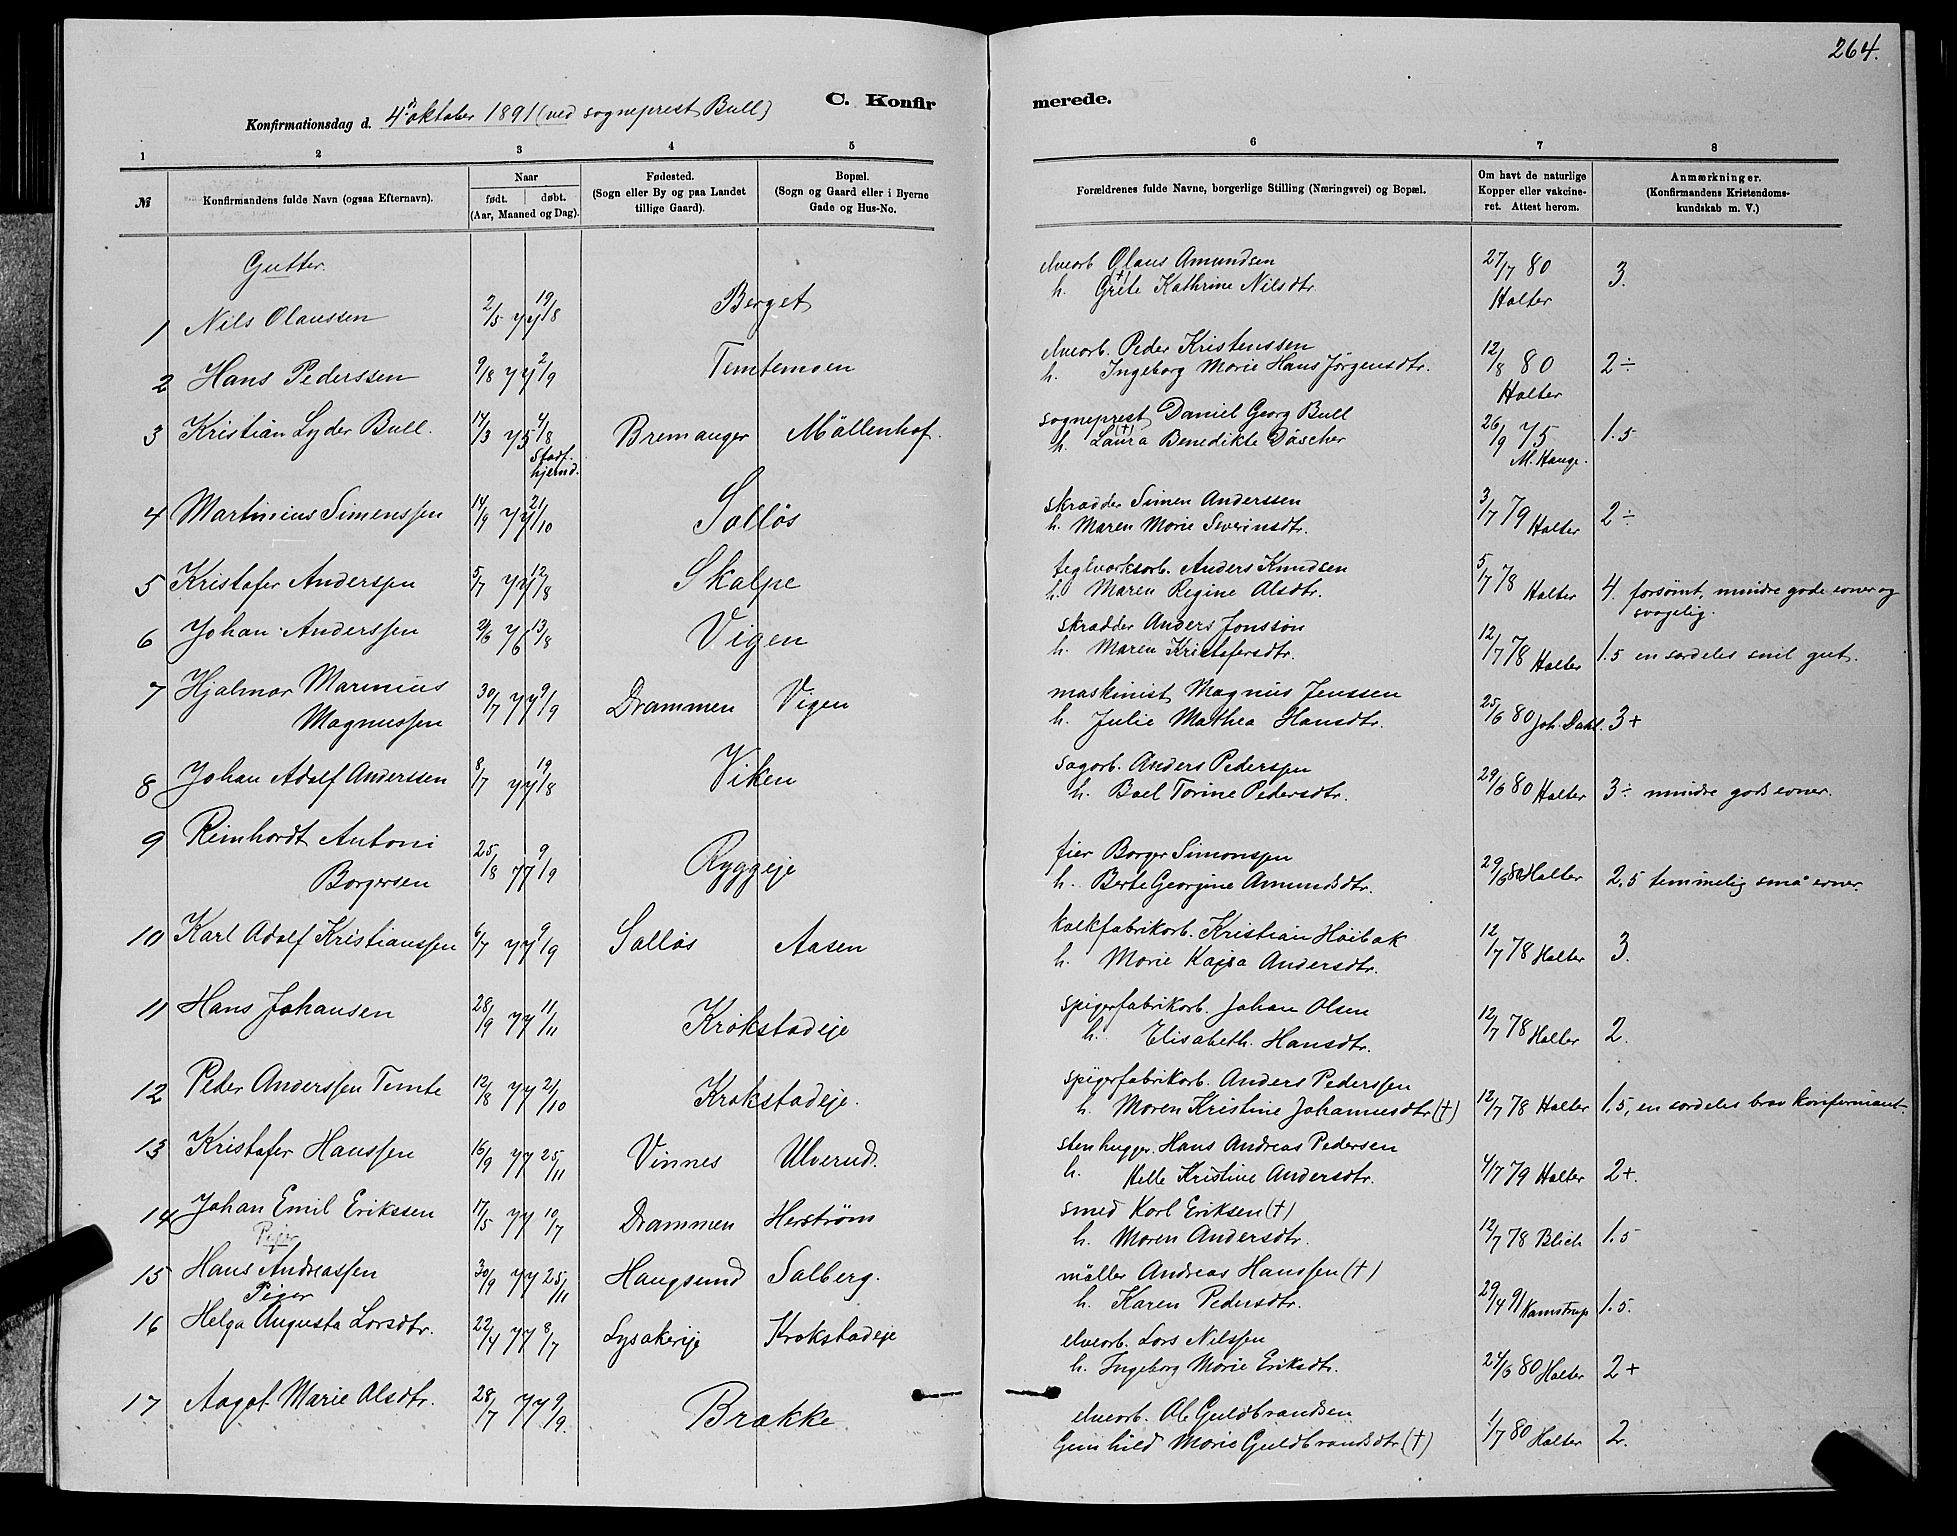 264.
C. Konfirmerede.
Konfirmationsdag d. 4de oktober 1891 (ved sogneprest Bull)
1 2 3 4 5 6 7 8
№
Konfirmandens fulde Navn (ogsaa Efternavn).
Naar
født. døbt.
(Aar, Maaned og Dag).
Fødested.
(Sogn eller By og paa Landet
tillige Gaard).
Bopæl.
(Sogn og Gaard eller i Byerne
Gade og Hus-No.
Forældrenes fulde Navne, borgerlige Stilling (Næringsvei) og Bopæl.
Om havt de naturlige
Kopper eller vakcine-
ret. Attest herom.
Anmærkninger.
(Konfirmandens Kristendoms-
kundskab m. V.)
Gutter.
1 Nils Olaussen 2/5 77 19/8 Berget
elvearb. Olaus Amundsen
h. Grete Kathrine Nilsdtr. (†) 27/7 80 Holter 3.
2 Hans Pederssen 9/8 77 2/9 Temtemoen
elvearb. Peder Kristenssen
h. Ingeborg Marie Hans Jörgensdtr. 12/8 80 Holter 2÷
3 Kristian Lyder Bull. 14/3 75 4/8 Bremanger Möllenhof.
sogneprest Daniel Georg Bull
h. Laura Benedikte Däscher (†) 26/9 75 M. Hauge. 1.5
4 Martinius Simenssen 14/9 77 21/10 Solløs
skrædder Simen Anderssen
h. Maren Marie Severinsdtr. 3/7 79 Holter 2÷
5 Kristofer Anderssen 5/7 77 12/8 Skalpe
teglverksarb. Anders Knudsen
h. Maren Regine Olsdtr. 5/7 78 Holter 4. forsømt, mindre gode evner og
svagelig.
6 Johan Anderssen 76 13/8 Vigen
skrædder Anders Jonsson
h. Maren Kristofersdtr. 12/7 78 Holter 1.5 en særdeles snil gut.
7 Hjalmar Marinius
Magnussen 30/7 77 9/9 Drammen Vigen
maskinist Magnus Jenssen
h. Julie Mathea Hansdtr. 25/6 80 Joh. Dahl. 3+
8 Johan Adolf Anderssen 8/7 77 19/8 Viken
sagarb. Anders Pederssen
h. Boel Torine Pedersdtr. 29/6 80 Holter 3÷ mindre gode evner.
9 Reinhardt Antoni
Borgersen 25/8 77 9/9 Ryggeje
eier Borger Simonssen
h. Berte Georgine Amundsdtr. 29/6 80 Holter 2,5 temmelig små evner.
10 Karl Adolf Kristianssen 6/7 77 9/9 Solløs Aasen
kalkfabrikarb. Kristian Höibak
h. Marie Kajsa Andersdtr. 12/7 78 Holter 3.
11 Hans Johansen 28/9 77 11/11 Krokstadeje
spigerfabrikarb. Johan Olsen
h. Elisabeth. Hansdtr. 12/7 78 Holter 2.
12 Peder Anderssen Temte 12/8 77 21/10 Krokstadeje.
spigerfabrikarb. Anders Pederssen
h. Maren Kristine Johannesdtr (†) 12/7 78 Holter 1,5, en særdeles brav konfirmant
13 Kristofer Hanssen 16/9 77 25/11 Vinnes Ulverud.
stenhugger. Hans Andreas Pedersen
h. Helle Kristine Andersdtr. 4/7 79 Holter 2+.
14 Johan Emil Erikssen 17/5 77 10/7 Drammen Herstrøm
smed Karl Eriksen (†)
h. Maren Andersdtr. 12/7 78 Blich 1.5
Piger
15 Hans Andreassen 30/9 77 25/11 Haugsund Solberg.
möller Andreas Hanssen (†)
h. Karen Pedersdtr. 29/4 91 Kamstrup 1.5.
Piger
16 Helga Augusta Larsdtr. 22/4 77 8/7 Lysakereje Krokstadeje
elvearb. Lars Nilssen
h. Ingeborg Marie Eriksdtr. 24/6 80 Holter 2+
17 Aagot Marie Olsdtr. 28/7 77 9/9. Brakke
elvearb. Ole Guldbrandsen
Gunhild Marie Guldbrandsdtr (†) 1/7 80 Holter 2.